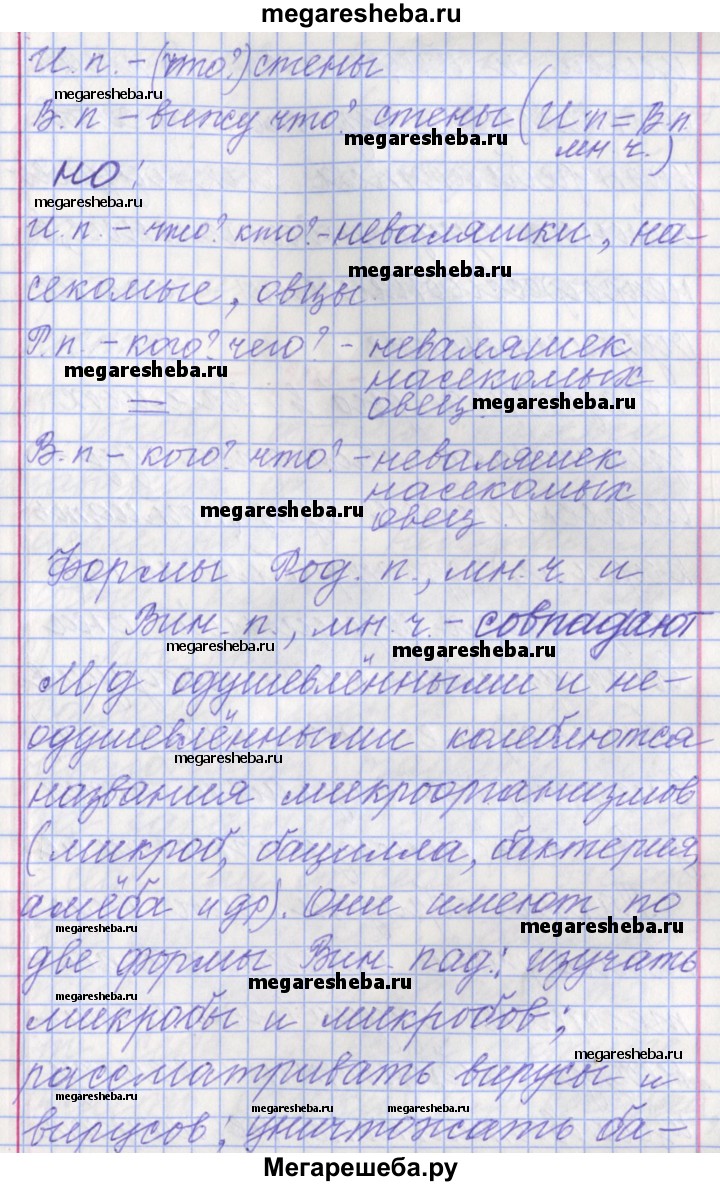 megaresheba.ru
И. п. – (что?) стены
megaresheba.ru
В. п – вижу что? стены (И. п = В. п.
megaresheba.ru
мн. ч.)
но:
megaresheba.ru
И. п. – что? кто? – неваляшки, на-
megaresheba.ru
секомые, овцы.
Р. п. – кого? чего? – неваляшек
megaresheba.ru
насекомых
= овец. megaresheba.ru
В. п – кого? что? – неваляшек
насекомых
megaresheba.ru
овец.
Формы Род. п., мн. ч. и
Вин. п., мн. ч. – совпадают
megaresheba.ru megaresheba.ru
М/д одушевлёнными и не-
одушевлёнными колеблются
megaresheba.ru
названия микроорганизмов
(микроб, бацилла, бактерия,
амёба и др). Они имеют по
megaresheba.ru megaresheba.ru
две формы Вин. пад.: изучать
megaresheba.ru
megaresheba.ru
микробы и микробов;
megaresheba.ru
рассматривать вирусы и
megaresheba.ru
megaresheba.ru megaresheba.ru
вирусов; уничтожать ба-
Мегарешеба.ру